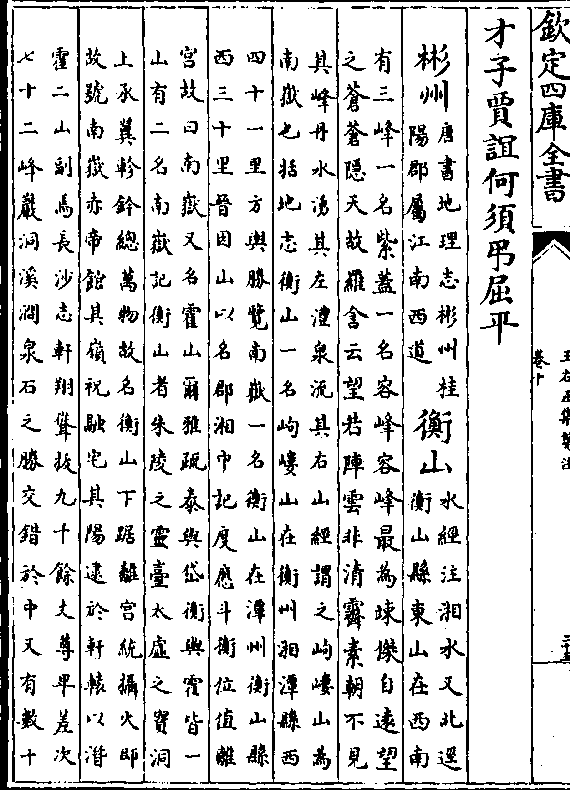 欽定四庫全書
卷十
才子賈誼何須弔屈平
彬州唐書地理志彬州桂
陽郡屬江南西道
衡山水經注湘水又北逕
衡山縣東山在西南
有三峰一名紫蓋一名容峰容峰最為竦傑自遠望
之蒼蒼隱天故羅含云望若陣雲非清霽素朝不見
其峰丹水湧其左澧泉流其右山經謂之岣嶁山為
南嶽也括地志衡山一名岣嶁山在衡州湘潭縣西
四十一里方輿勝覽南嶽一名衡山在潭州衡山縣
西三十里晉因山以名郡湘中記度應斗衡位值離
宮故曰南嶽又名霍山爾雅疏泰與岱衡與霍皆一
山有二名南嶽記衡山者朱陵之靈臺太虛之寶洞
上承翼軫鈐總萬物故名衡山下踞離宮統攝火師
故號南嶽赤帝館其嶺祝融宅其陽逮於軒轅以潛
霍二山副焉長沙志軒翔聳拔九千餘丈尊卑差次
七十二峰巖洞溪澗泉石之勝交錯於中又有數十